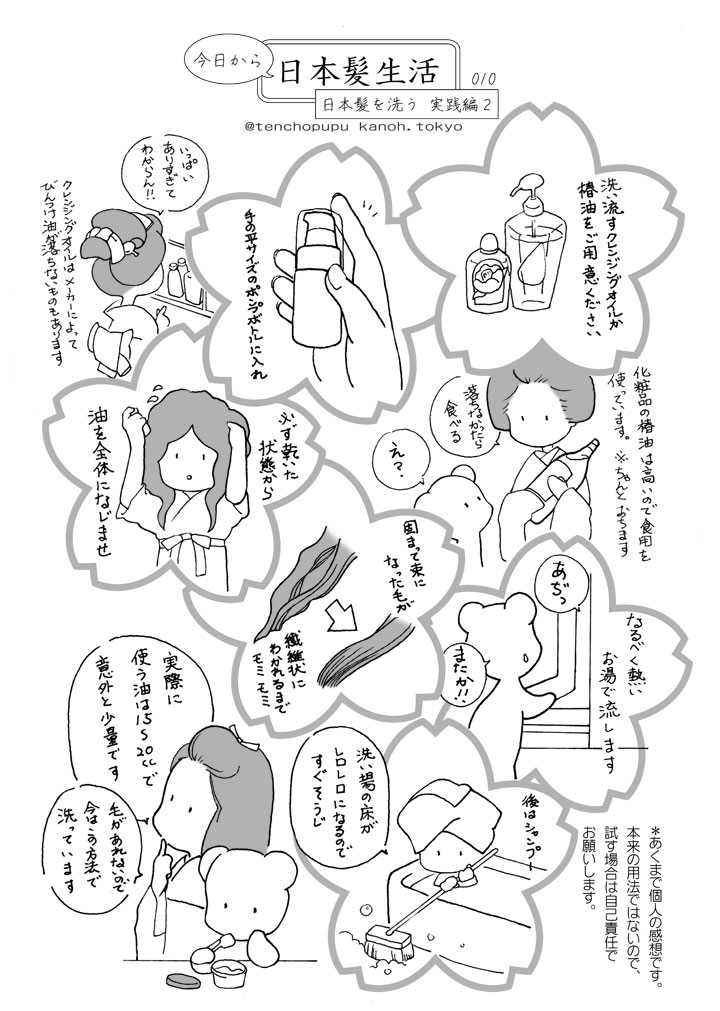 今日から
日本髪生活
010
日本髪を洗う 実践編2
@tenchopupu kanoh.tokyo
洗い流すクレンジングオイルか
椿油をご用意ください
手の平サイズのポンプボトルに入れ
いっぱい
ありすぎて
わからん!!
クレンジングオイルはメーカーによって
びんつけ油が落ちないものもあります
化粧品の椿油は高いので食用を
使っています。※ちゃんとおちます
落ちなかったら
食べる
え?
必ず乾いた
状態から
油を全体になじませ
固まって束に
なった毛が
繊維状に
わかれるまで
モミモミ
あぢっ
またか!!
なるべく熱い
お湯で流します
実際に
使う油は15〜20ccで
意外と少量です
毛があれないので
今はこの方法で
洗っています
後はシャンプー
洗い場の床が
レロレロになるので
すぐそうじ
*あくまで個人の感想です。
本来の用法ではないので、
試す場合は自己責任で
お願いします。